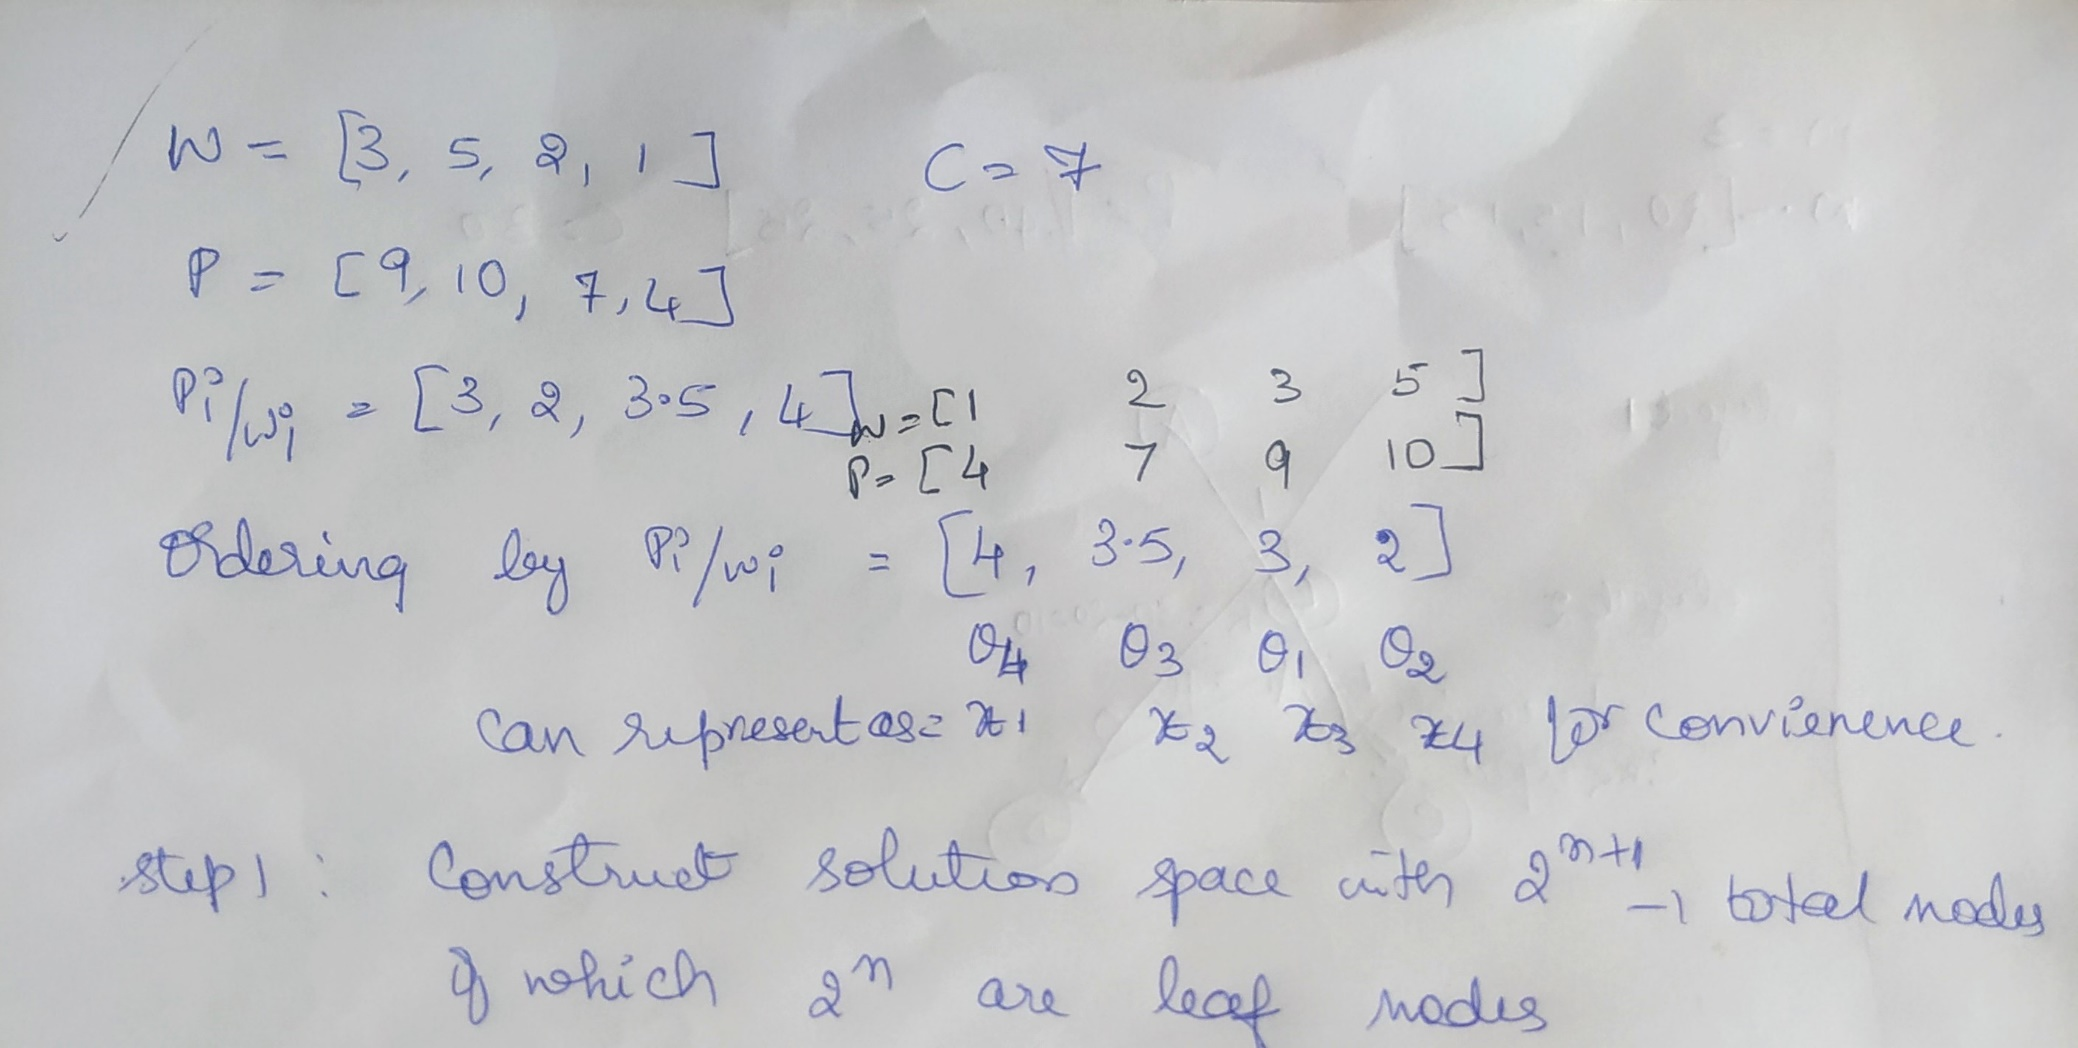 W = [3, 5, 2, 1] C = 7
P = [9, 10, 7, 4]
Pi/wi = [3, 2, 3.5, 4] W = [1 2 3 5]
P = [4 7 9 10]
Ordering by Pi/wi = [4, 3.5, 3, 2]
O4 O3 O1 O2
Can represent as = x1 x2 x3 x4 for convienence.
step 1 : Construct solution space with 2^{n+1} - 1 total nodes
of which 2^n are leaf nodes